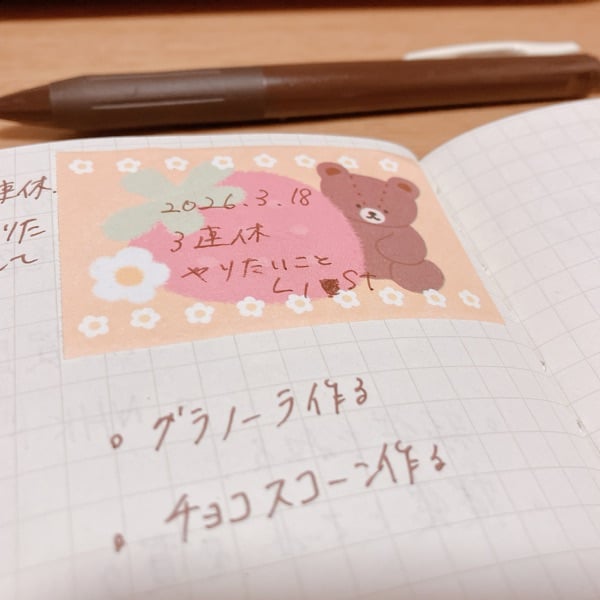 連休.
りた
して
2026.3.18
3連休
やりたいこと
LIST
グラノーラ作る
チョコスコーン作る